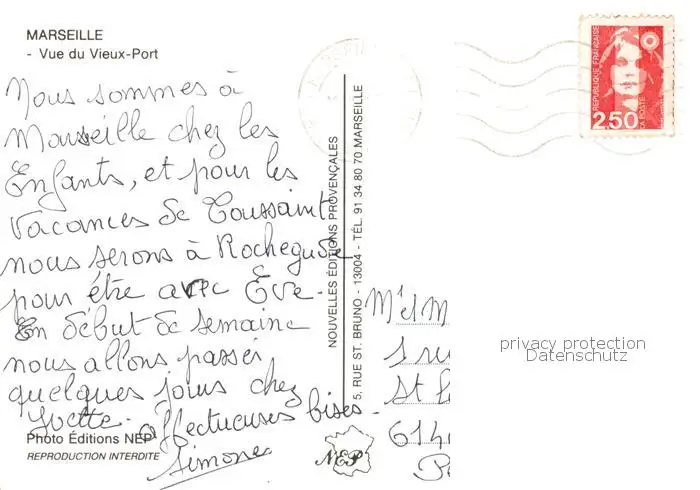 MARSEILLE
- Vue du Vieux-Port
Nous sommes à
Marseille chez les
Enfants, et pour les
vacances de Toussaint
nous serons à Rochegude
pour être avec Eve.
En début de semaine
nous allons passer
quelques jours chez
Yvette. affectueuses bises.
Simone
Photo Éditions NEP
REPRODUCTION INTERDITE
NOUVELLES ÉDITIONS PROVENÇALES
5, RUE ST. BRUNO - 13004 - TÉL. 91 34 80 70 MARSEILLE
NEP
REPUBLIQUE FRANÇAISE
LA POSTE
2,50
M et M
1 ru
St
614
privacy protection
Datenschutz